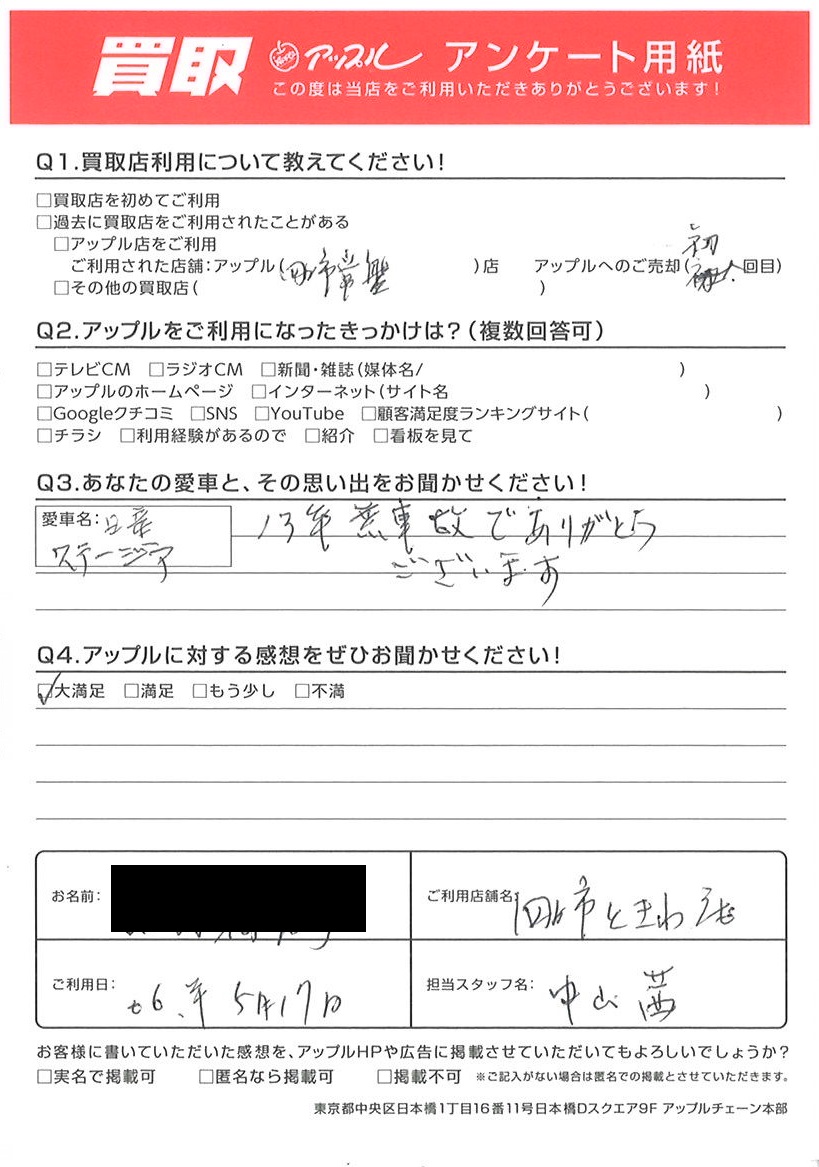 買取 アップル アンケート用紙
この度は当店をご利用いただきありがとうございます!
Q1.買取店利用について教えてください!
□買取店を初めてご利用
□過去に買取店をご利用されたことがある
□アップル店をご利用
ご利用された店舗:アップル(四日市常盤)店 アップルへのご売却(初 回目)
□その他の買取店( )
Q2.アップルをご利用になったきっかけは?(複数回答可)
□テレビCM □ラジオCM □新聞・雑誌(媒体名/ )
□アップルのホームページ □インターネット(サイト名 )
□Googleクチコミ □SNS □YouTube □顧客満足度ランキングサイト( )
□チラシ □利用経験があるので □紹介 □看板を見て
Q3.あなたの愛車と、その思い出をお聞かせください!
愛車名:日産 13年無事故でありがとう
ステージア ございます
Q4.アップルに対する感想をぜひお聞かせください!
☑大満足 □満足 □もう少し □不満
お名前:
ご利用店舗名: 四日市ときわ店
ご利用日: 06年5月17日
担当スタッフ名: 中山 茜
お客様に書いていただいた感想を、アップルHPや広告に掲載させていただいてもよろしいでしょうか?
□実名で掲載可 □匿名なら掲載可 □掲載不可 ※ご記入がない場合は匿名での掲載とさせていただきます。
東京都中央区日本橋1丁目16番11号日本橋Dスクエア9F アップルチェーン本部